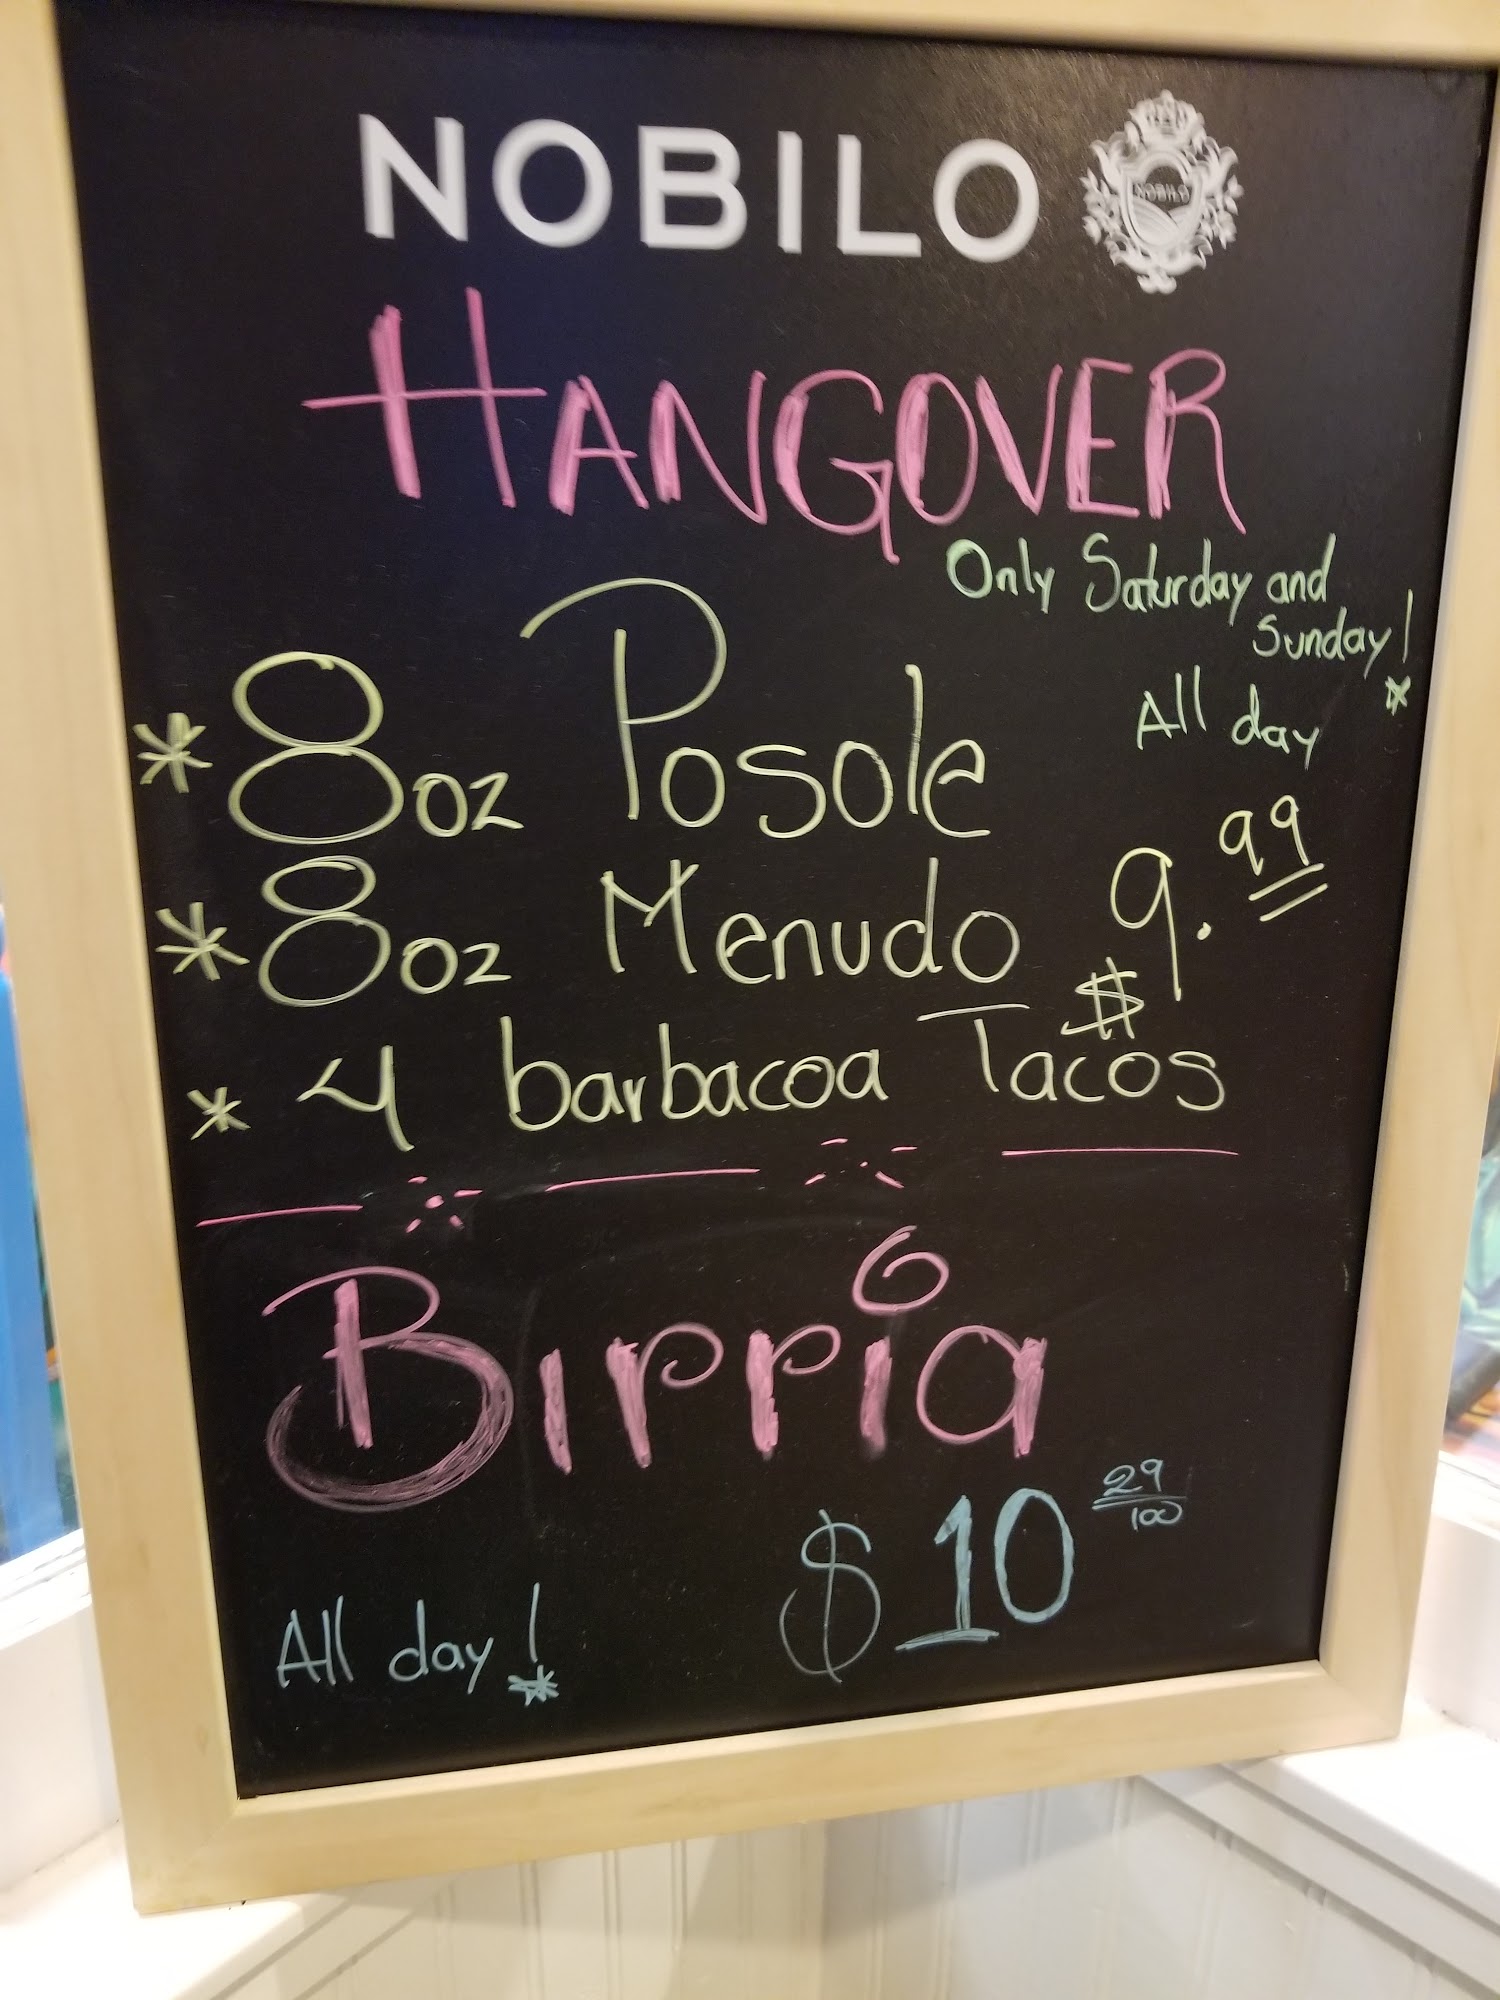 NOBILO NOBILO
HANGOVER
Only Saturday and
Sunday!
All day
* 8oz Posole
* 8oz Menudo $9.99
* 4 barbacoa Tacos
Birria
$10 29/100
All day!